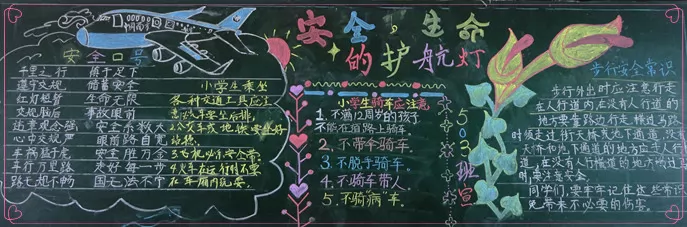 安全,生命
的护航灯
安全口号
千里之行 始于足下
遵守交规 储蓄安全
红灯短暂 生命无限
交规脑后 事故眼前
违章观念强 安全系数大
心中交规声 眼前路自宽
车祸猛于虎 安全胜万金
车行万里路 走好每一步
路上想不畅 国无法不宁
小学生乘坐
各种交通工具应注
2.公交车或地铁要坐好
4.火车在运行时不要
在车厢内玩耍.
小学生骑车应注意
1.不满12周岁的孩子
不能在道路上骑车.
2.不带伞骑车.
3.不脱手骑车.
4.不骑车带人.
5.不骑“病”车.
503班宣
步行安全常识
步行外出时应注意行走
在人行道内,在没有人行道的
地方要靠路边行走.横过马路
时须走过街天桥或地下通道,没有
天桥和地下通道的地方应走人行
道,在没有人行横道的地方横过马
时,要注意安全.
同学们,要牢牢记住这些常识
免带来不必要的伤害.